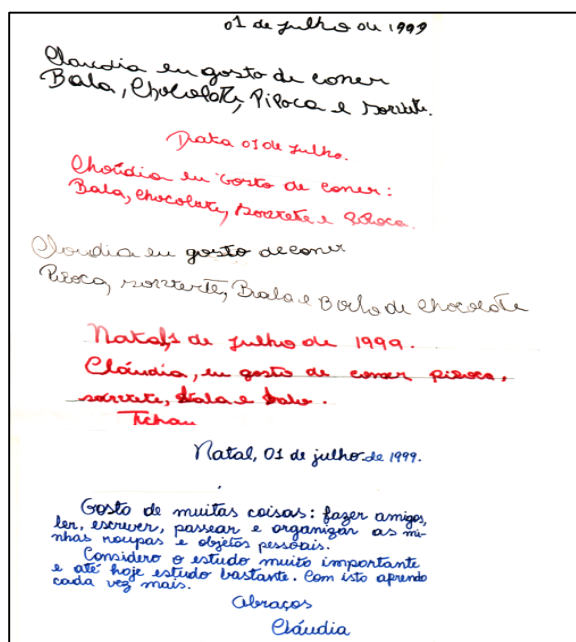 01 de julho de 1999
Claudia eu gosto de comer
Bala, Chocolate, Pipoca e sorvete.
Data 01 de julho.
Cláudia eu Gosto de comer:
Bala, chocolate, sorvete e Pipoca.
Claudia eu gosto de comer
Pipoca, sorvete, Bala e Bolo de chocolate
Natal, 1 de julho de 1999.
Cláudia, eu gosto de comer pipoca,
sorvete, bala e bolo.
Tchau
Natal, 01 de julho de 1999.
Gosto de muitas coisas: fazer amigos,
ler, escrever, passear e organizar as mi-
nhas roupas e objetos pessoais.
Considero o estudo muito importante
e até hoje estudo bastante. Com isto aprendo
cada vez mais.
Abraços
Cláudia